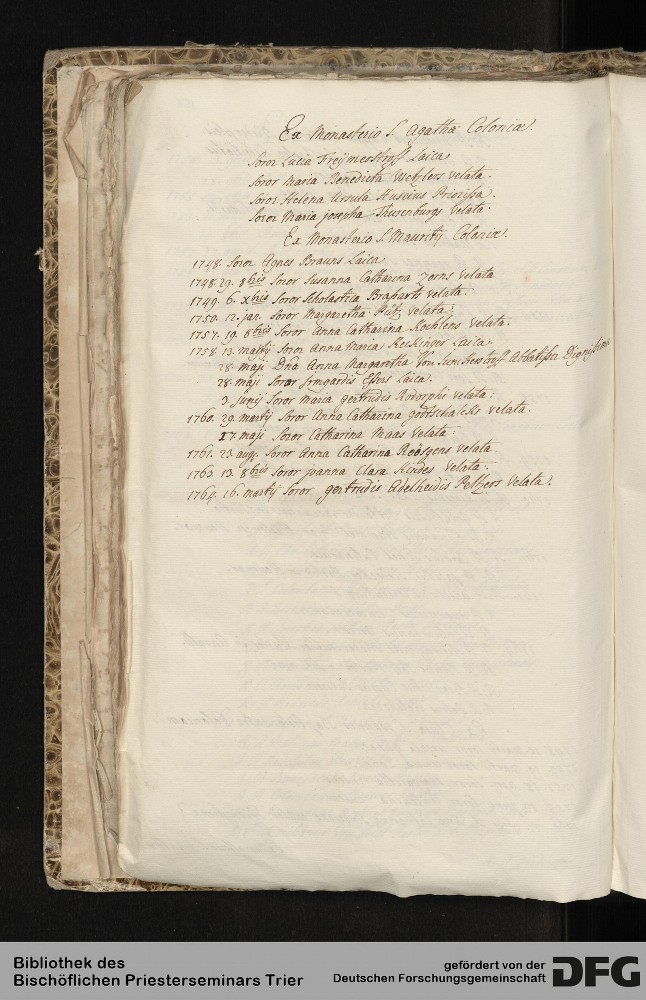 Ex Monasterio S. Agatha Coloniæ.
Soror Lucia Freÿmerstorff Laica
Soror Maria Benedicta Wetzlers Velata.
Soror Helena Ursula Huseius Priorissa.
Soror Maria Josepha Thurenburgs Velata.
Ex Monasterio S. Mauritÿ Coloniæ.
1748. Soror Agnes Brauns Laica
1748. 29. 8bris Soror Susanna Catharina Zorns Velata
1749. 6. Xbris Soror Scholastica Brabarts Velata.
1750. 12. jan. Soror Margaretha Pütz Velata.
1757. 19. 8bris Soror Anna Catharina Kochlens Velata.
1758. 13. martÿ Soror Anna Maria Laica.
28. maji Dna Anna Margaretha Von Abbatissa Dignissima
28. maji Soror Irmgardis Essers Laica.
3. Junÿ Soror Maria gertrudis Rodorphi Velata.
1760. 29. martÿ Soror Anna Catharina godtschalcks Velata.
17. maji Soror Catharina Maas Velata.
1761. 23. aug. Soror Anna Catharina Roësgens Velata.
1763. 13. 8bris Soror joanna Clara Kindes Velata.
1764. 16. martÿ Soror gertrudis Adelheidis Peltzers Velata.
Bibliothek des
Bischöflichen Priesterseminars Trier
gefördert von der
Deutschen Forschungsgemeinschaft
DFG